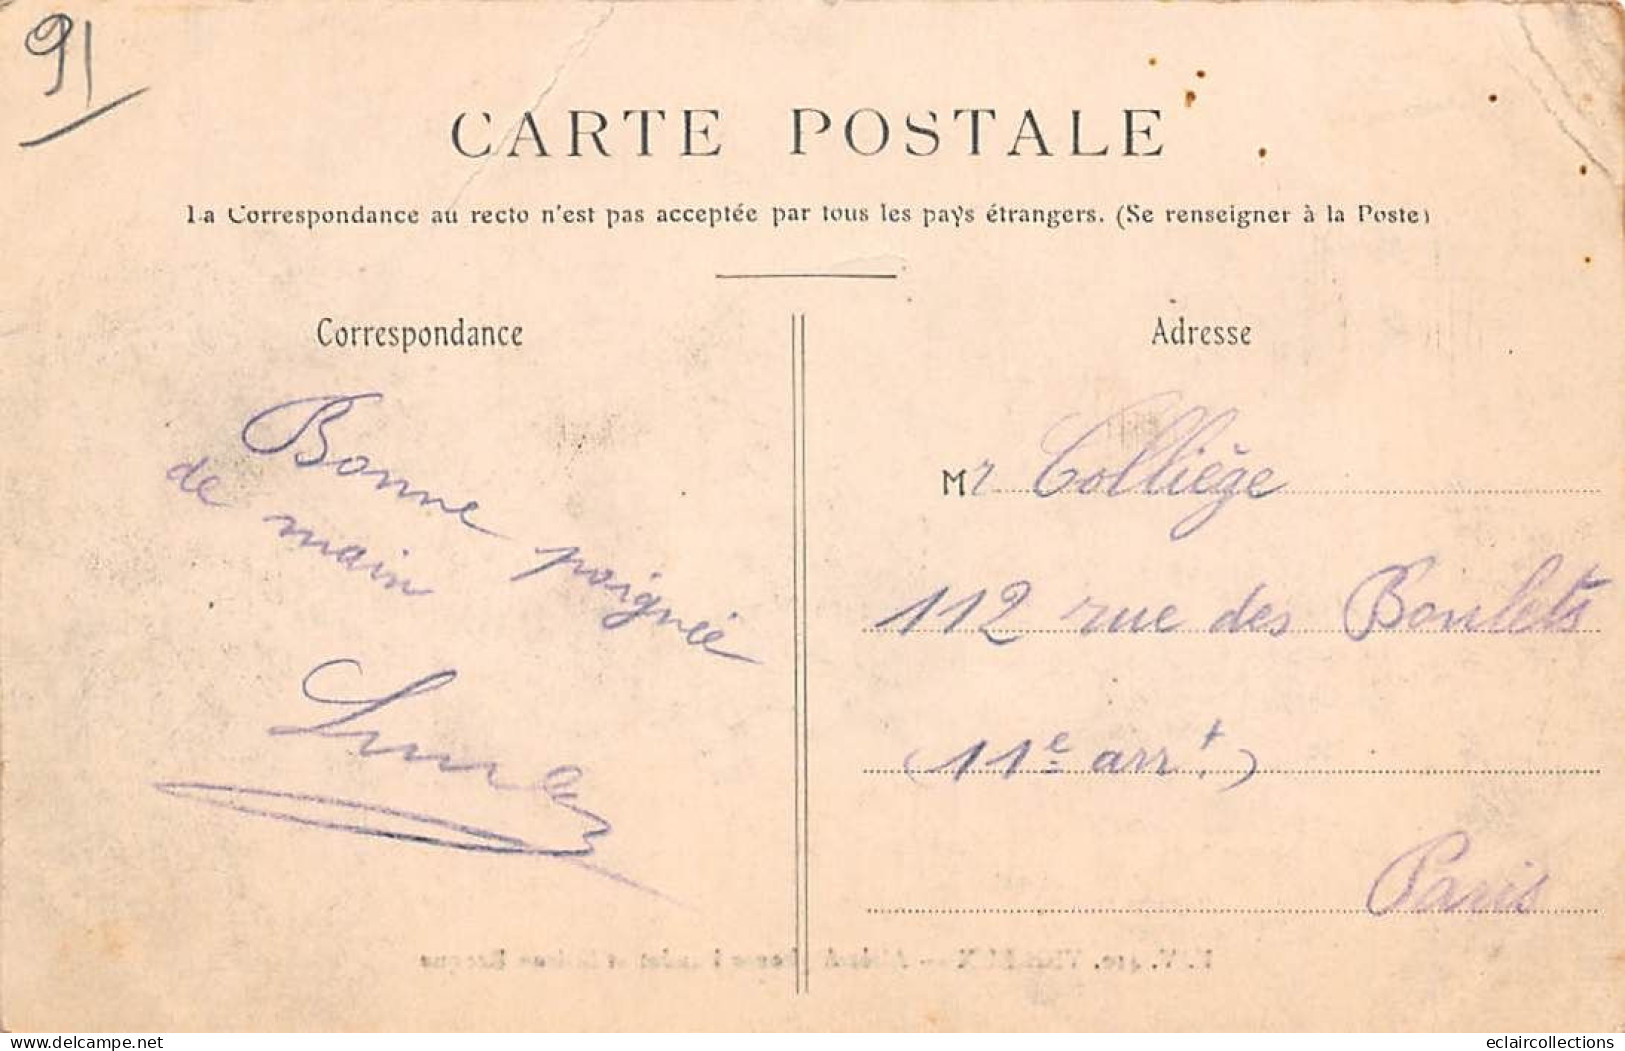 91
CARTE POSTALE
La Correspondance au recto n'est pas acceptée par tous les pays étrangers. (Se renseigner à la Poste)
Correspondance
Bonne poignée
de main
Adresse
Mr Colliège
112 rue des Boulets
(11e arrt)
Paris
delcampe.net
eclaircollections